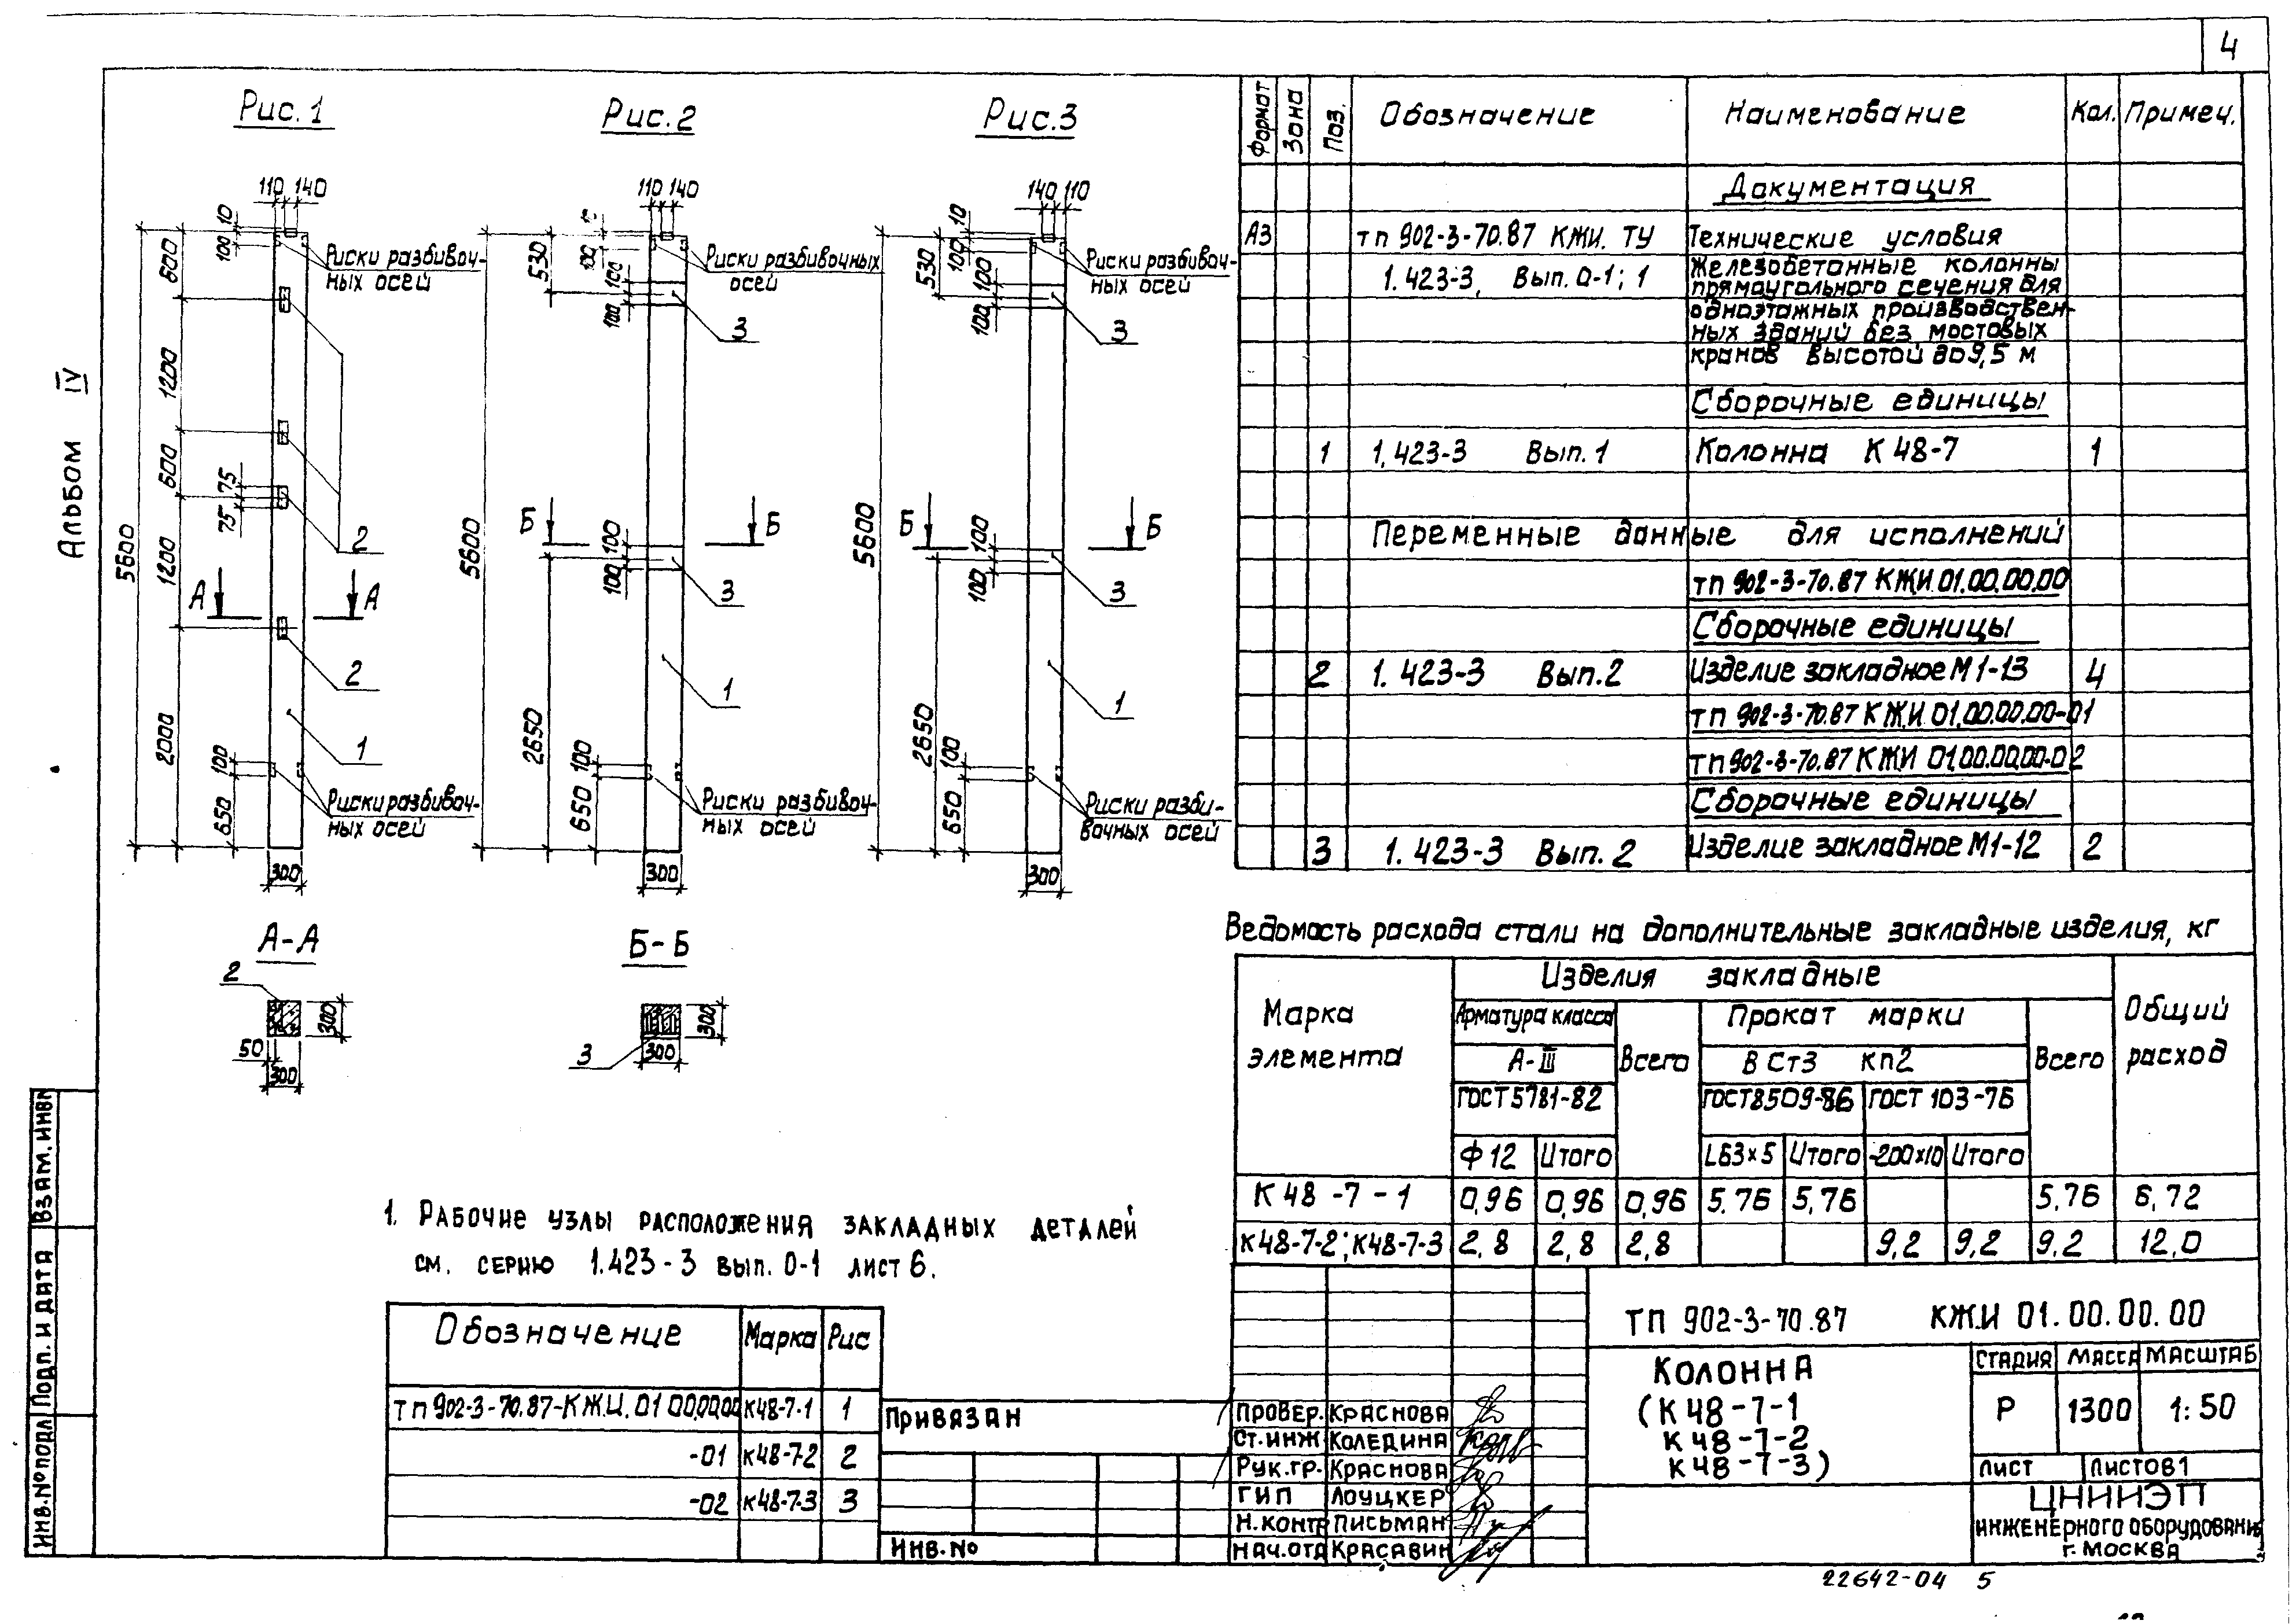 4
Альбом IV
Рис. 1
110 140
10
100
600
1200
600
75
75
1200
2000
5600
100
650
300
Риски разбивоч-
ных осей
2
А А
2
1
Риски разбивоч-
ных осей
Рис. 2
110 140
100
530
100
100
5600
Риски разбивочных
осей
3
Б Б
100
100
3
1
2650
100
650
Риски разбивоч-
ных осей
300
Рис. 3
140 110
10
100
530
100
100
5600
Риски разбивоч-
ных осей
3
Б Б
100
100
3
1
2650
100
650
Риски разби-
вочных осей
300
А-А
2
300
50
300
Б-Б
300
3
300
Формат Зона Поз. Обозначение Наименование Кол. Примеч.
Документация
А3 тп 902-3-70.87 КЖИ. ТУ Технические условия
1.423-3, Вып. 0-1; 1 Железобетонные колонны
прямоугольного сечения для
одноэтажных производствен-
ных зданий без мостовых
кранов высотой до 9,5 м
Сборочные единицы
1 1.423-3 Вып. 1 Колонна К 48-7 1
Переменные данные для исполнений
тп 902-3-70.87 КЖИ 01.00.00.00
Сборочные единицы
2 1. 423-3 Вып. 2 Изделие закладное М1-13 4
тп 902-3-70.87 КЖИ 01.00.00.00-01
тп 902-3-70.87 КЖИ 01.00.00.00-02
Сборочные единицы
3 1. 423-3 Вып. 2 Изделие закладное М1-12 2
Ведомость расхода стали на дополнительные закладные изделия, кг
Марка элемента
Изделия закладные
Общий расход
Арматура класса Всего Прокат марки Всего
А-III В Ст3 кп2
ГОСТ 5781-82 ГОСТ 8509-86 ГОСТ 103-76
Ф 12 Итого L63×5 Итого -200×10 Итого
К 48 -7 - 1 0,96 0,96 0,96 5.76 5,76 5,76 6,72
К48-7-2; К48-7-3 2,8 2,8 2,8 9,2 9,2 9,2 12,0
1. Рабочие узлы расположения закладных деталей
см. серию 1.423-3 вып. 0-1 лист 6.
Обозначение Марка Рис
тп 902-3-70.87-КЖИ. 01 00.00.00 К48-7-1 1
-01 К48-7-2 2
-02 К48-7-3 3
Привязан
Инв. №
Провер. Краснова
Ст. инж Коледина
Рук. гр. Краснова
ГИП Лоуцкер
Н. контр Письман
Нач. отд Красавин
ТП 902-3-70.87 КЖИ 01.00.00.00
Колонна
(К 48-7-1
К 48-7-2
К 48-7-3)
Стадия Масса Масштаб
Р 1300 1:50
Лист Листов 1
ЦНИИЭП
инженерного оборудования
г. Москва
Взам. инв №
Подп. и дата
Инв. № подл
22642-04 5